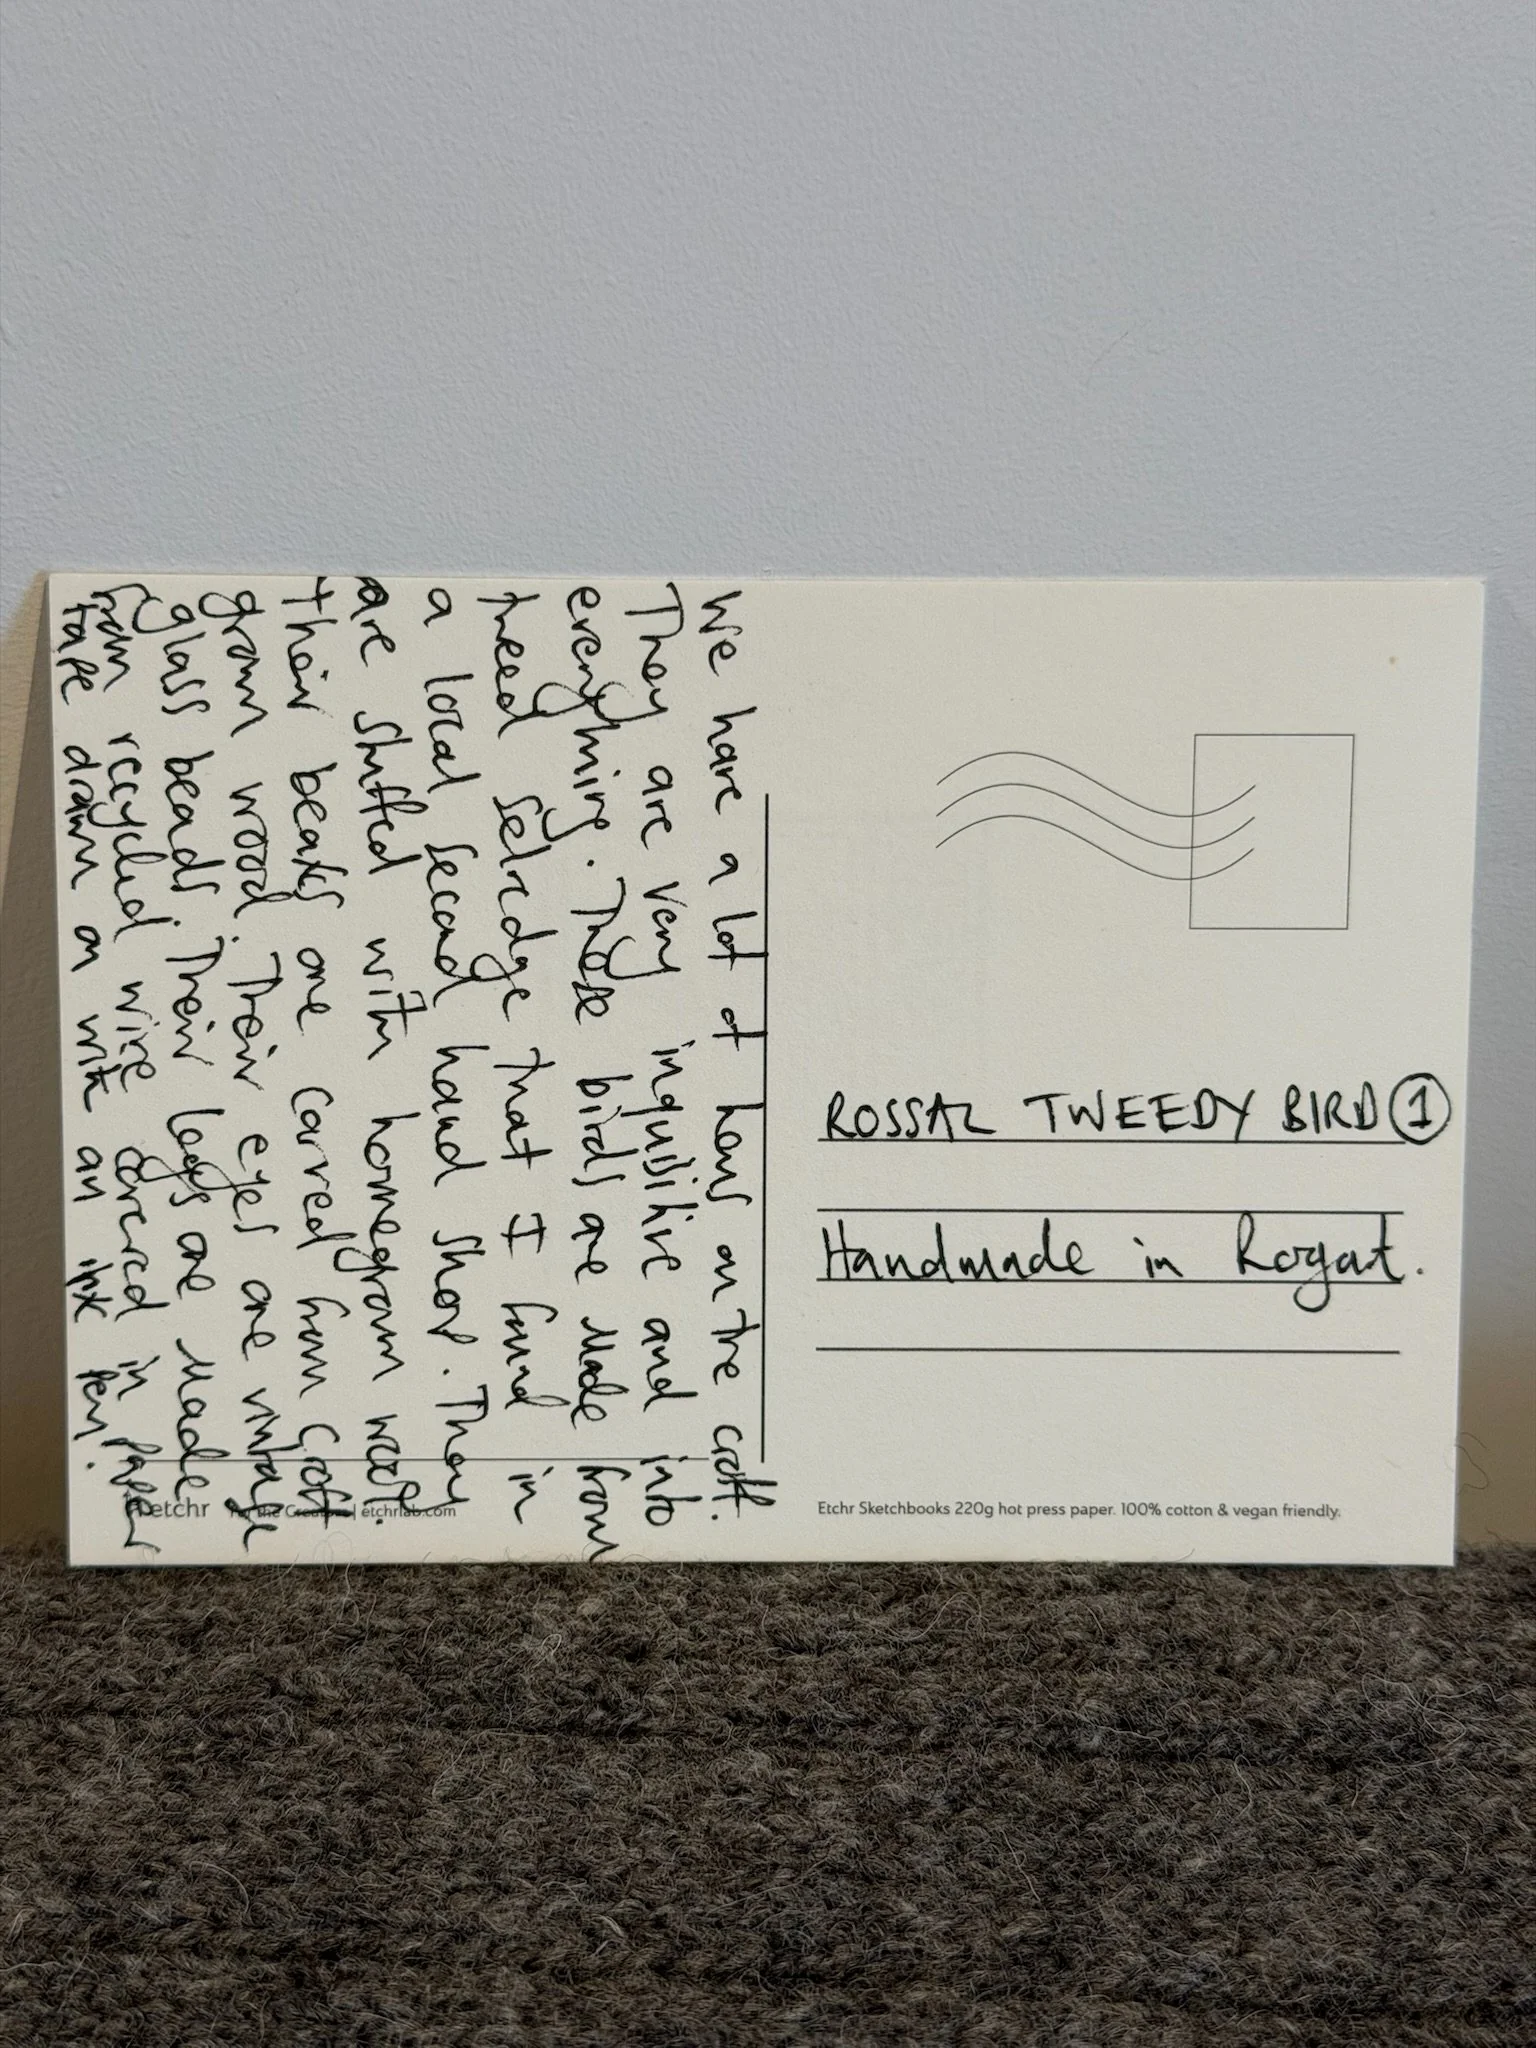 We have a lot of hens on the croft.
They are very inquisitive and into
everything. These birds are made from
tweed selvedge that I found in
a local second hand shop. They
are stuffed with homegrown wool.
Their beaks are carved from croft
grown wood. Their eyes are vintage
glass beads. Their legs are made
from recycled wire covered in paper
tape drawn on with an ink pen.
ROSSAL TWEEDY BIRD 1
Handmade in Rogart.
etchr For the Creators | etchrlab.com
Etchr Sketchbooks 220g hot press paper. 100% cotton & vegan friendly.